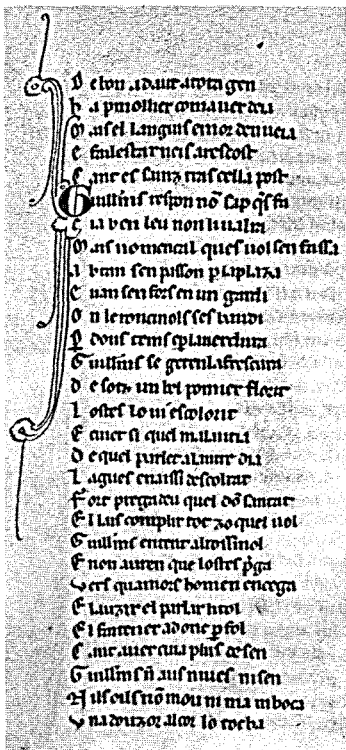 D e bon adaut a tota gen
h a p mollier com auer deu a
M as el languis e mor d enueia
E fai l estar neis a rescost
C ant es sanz tras cella post
Guillems respon nõ sap q̃s fa
E ia ben leu non li ualra
M as no men cal ques uol sen fassa
A b tan sen passon p la plaza
E uan sen fors en un gardi
O n le roncinols ses baudi
P dous tems e p la uerdura
Guillems se get en la frescura
D e sotz un bel pomier florit
L ostes lo ui escolorit
E cuiet si quel malautia
D e quel parlet a lautre dia
L agues enaissi descolrat
Fort prega deu quel dõ santat
E l lais complir tot zo quel uol
Guillems enten al rossinol
E non au ren que lostes p̃ga
Vers qu amors homen encega
E lauzir el parlar li tol
E l fai tener adonc p fol
C ant auer cuia plus de sen
Guillems nõ aus ni ues ni sen
N ils oils nõ mou ni ma ni boca
V na douzor al cor lo tocha